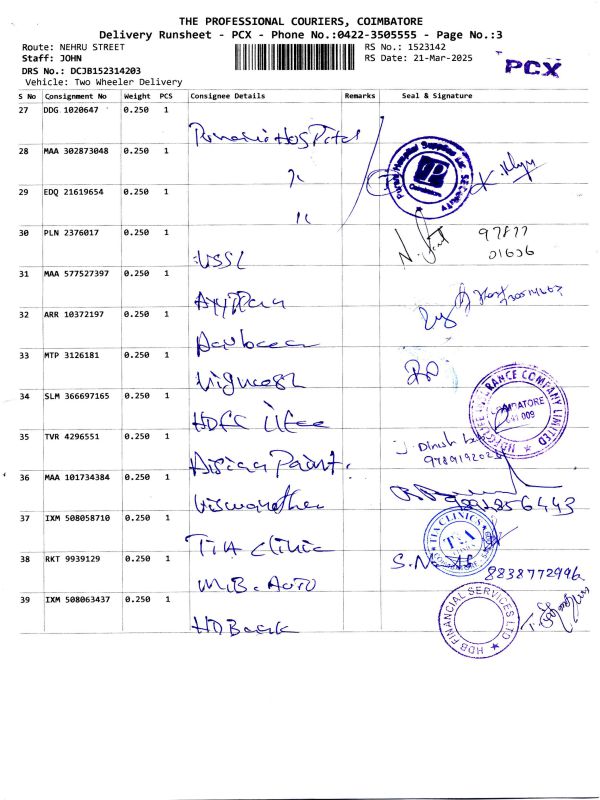 THE PROFESSIONAL COURIERS, COIMBATORE
Delivery Runsheet - PCX - Phone No.:0422-3505555 - Page No.:3
Route: NEHRU STREET
RS No.: 1523142
Staff: JOHN
RS Date: 21-Mar-2025
PCX
DRS No.: DCJB152314203
Vehicle: Two Wheeler Delivery
S No Consignment No Weight PCS Consignee Details Remarks Seal & Signature
27 DDG 1020647 0.250 1
Hospital
28 MAA 302873048 0.250 1
29 EDQ 21619654 0.250 1
30 PLN 2376017 0.250 1
97877
01636
USSL
31 MAA 577527397 0.250 1
32 ARR 10372197 0.250 1
33 MTP 3126181 0.250 1
Vignesh
34 SLM 366697165 0.250 1
COIMBATORE
HDFC Life
35 TVR 4296551 0.250 1
J. Dinesh
Asian Paint.
36 MAA 101734384 0.250 1
Viswanathan
37 IXM 508058710 0.250 1
TIA CLINICS
TIA
Tia clinic
38 RKT 9939129 0.250 1
8838772996
M.B. Auto
39 IXM 508063437 0.250 1
HDB FINANCIAL SERVICES LTD
HDBank